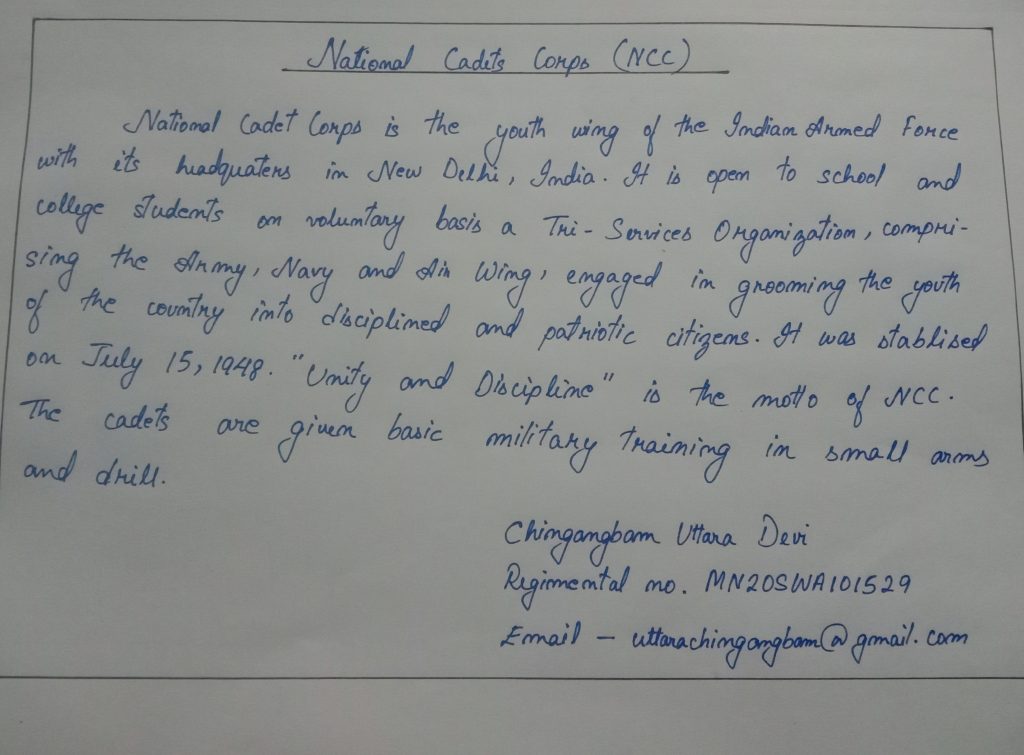 National Cadets Corps (NCC)
National Cadet Corps is the youth wing of the Indian Armed Force
with its headquaters in New Delhi, India. It is open to school and
college students on voluntary basis a Tri-Services Organization, compri-
sing the Army, Navy and Air Wing, engaged in grooming the youth
of the country into disciplined and patriotic citizens. It was stablised
on July 15, 1948. "Unity and Discipline" is the motto of NCC.
The cadets are given basic military training in small arms
and drill.
Chingangbam Uttara Devi
Regimental no. MN20SWA101529
Email - uttarachingangbam@gmail.com